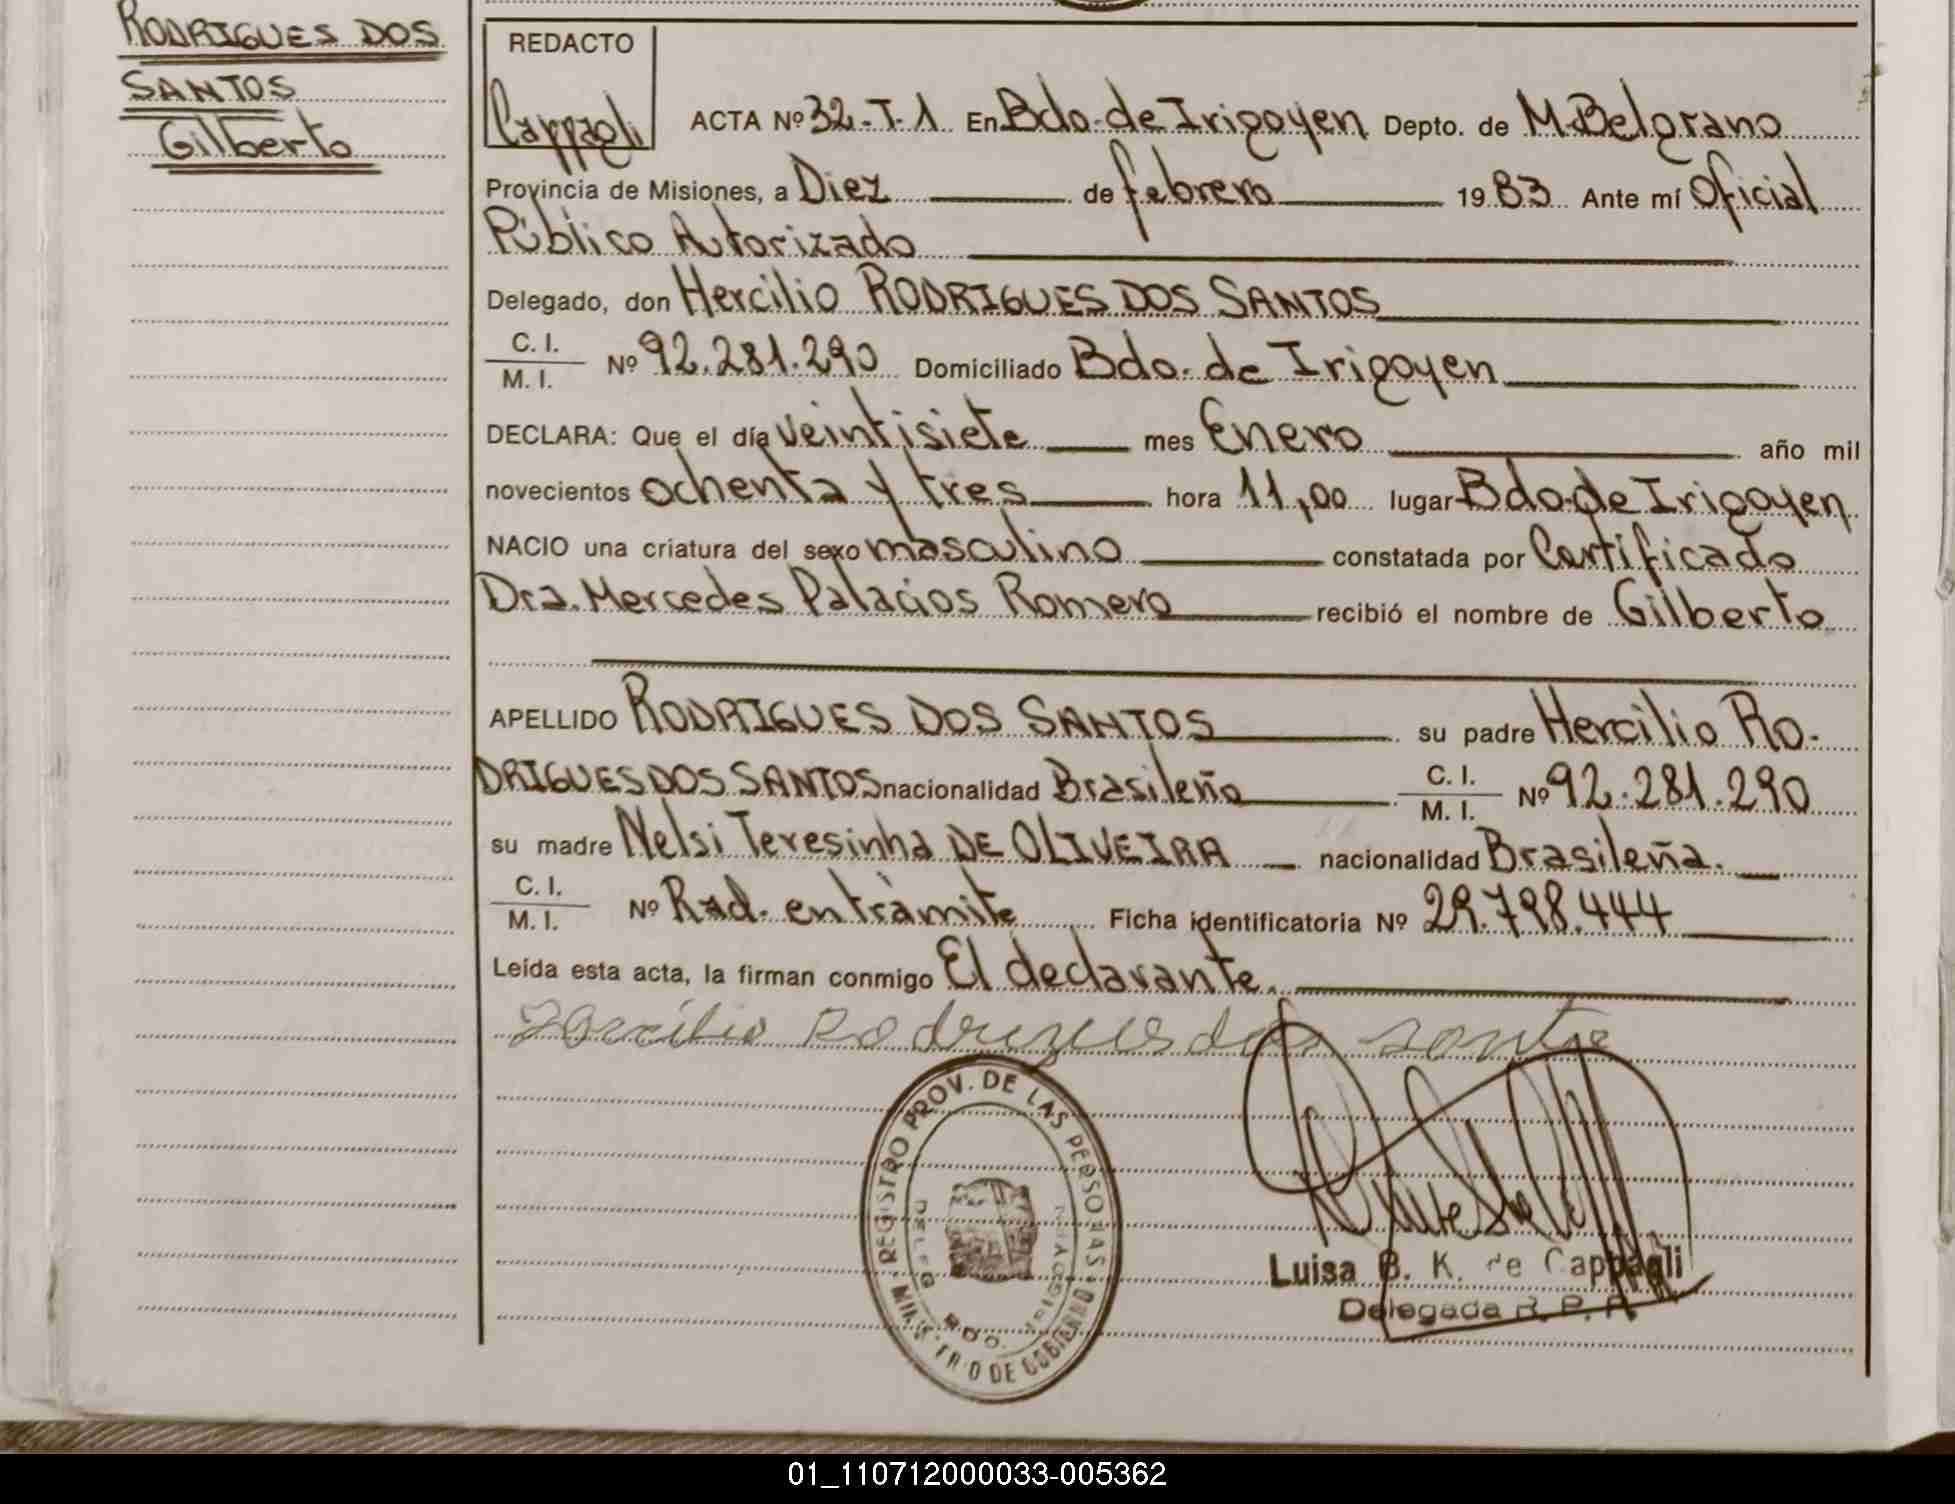 RODRIGUES DOS
SANTOS
Gilberto
REDACTO
Cappagli
ACTA Nº 32-T.1 En Bdo. de Irigoyen Depto. de M. Belgrano
Provincia de Misiones, a Diez de febrero 1983 Ante mí Oficial
Público Autorizado
Delegado, don Hercilio RODRIGUES DOS SANTOS
C. I.
M. I. Nº 92.281.290 Domiciliado Bdo. de Irigoyen
DECLARA: Que el día veintisiete mes Enero año mil
novecientos ochenta y tres hora 11,00 lugar Bdo. de Irigoyen
NACIO una criatura del sexo masculino constatada por Certificado
Dra. Mercedes Palacios Romero recibió el nombre de Gilberto
APELLIDO RODRIGUES DOS SANTOS su padre Hercilio RO-
DRIGUES DOS SANTOS nacionalidad Brasileño C. I. M. I. Nº 92.281.290
su madre Nelsi Teresinha DE OLIVEIRA nacionalidad Brasileña.
C. I.
M. I. Nº Rad. en trámite Ficha identificatoria Nº 29.798.444
Leída esta acta, la firman conmigo El declarante.
Hercilio Rodrigues dos santos
REGISTRO PROV. DE LAS PERSONAS
DELEG. BDO. IRIGOYEN
MINISTERIO DE GOBIERNO
Luisa B. K. de Cappagli
Delegada R. P. P.
01_110712000033-005362